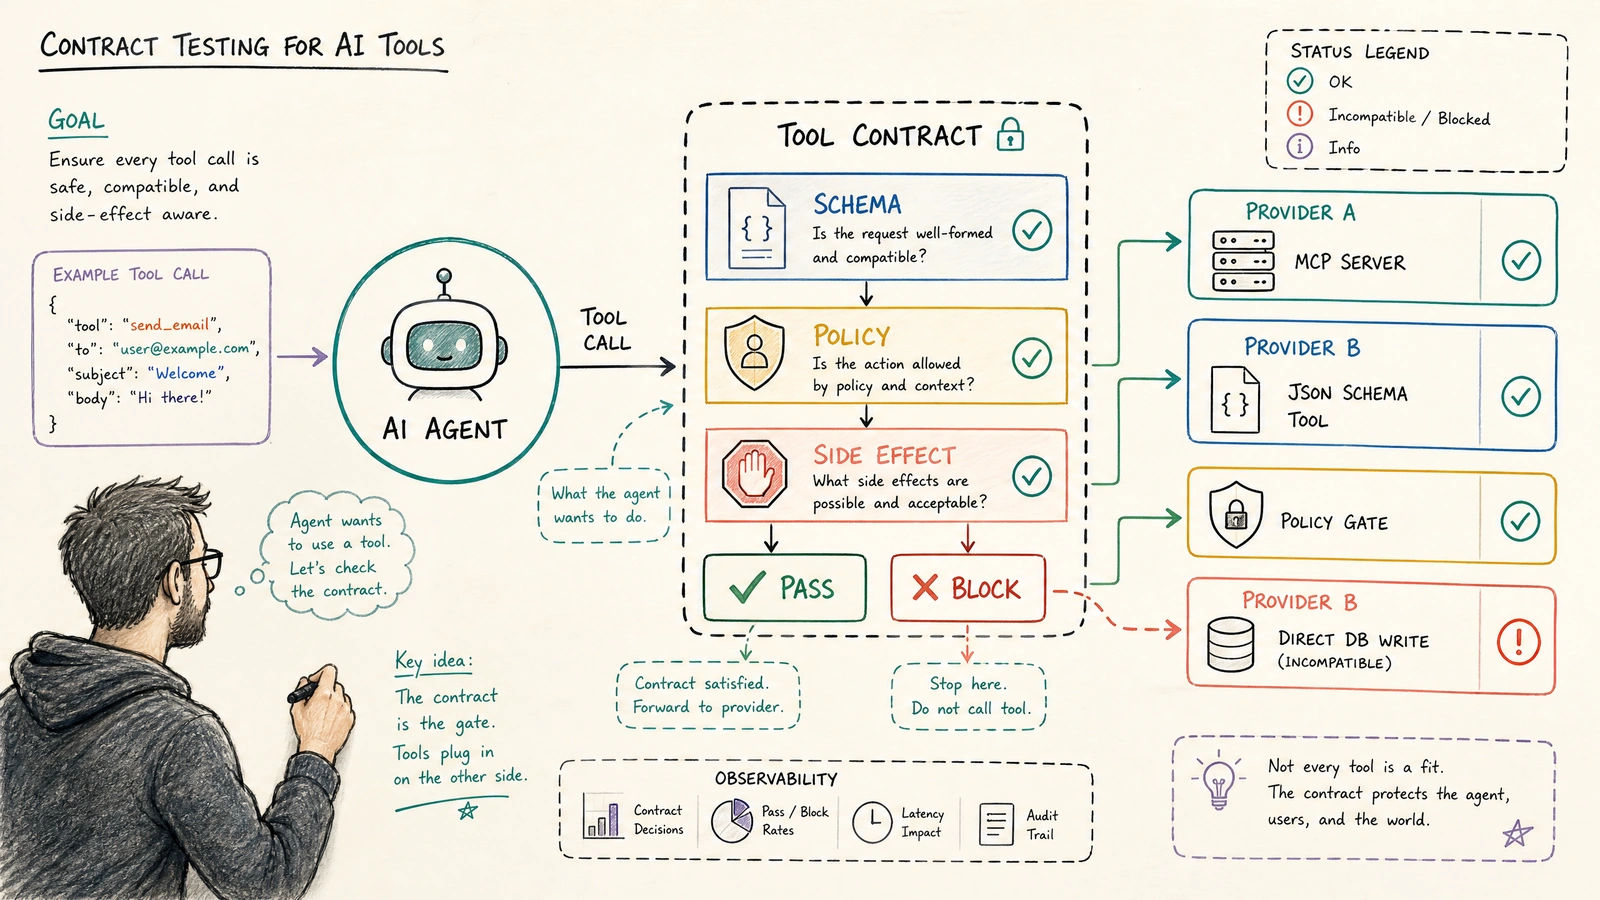 CONTRACT TESTING FOR AI TOOLS
GOAL
Ensure every tool call is
safe, compatible, and
side-effect aware.
EXAMPLE TOOL CALL
{
"tool": "send_email",
"to": "user@example.com",
"subject": "Welcome",
"body": "Hi there!"
}
AI AGENT
TOOL
CALL
What the agent
wants to do.
Agent wants
to use a tool.
Let's check
the contract.
Key idea:
The contract
is the gate.
Tools plug in
on the other side.
TOOL CONTRACT
{ }
SCHEMA
Is the request well-formed
and compatible?
POLICY
Is the action allowed
by policy and context?
SIDE EFFECT
What side effects are
possible and acceptable?
PASS
BLOCK
Contract satisfied.
Forward to provider.
Stop here.
Do not call tool.
OBSERVABILITY
Contract
Decisions
Pass / Block
Rates
Latency
Impact
Audit
Trail
STATUS LEGEND
OK
! Incompatible / Blocked
i Info
PROVIDER A
MCP SERVER
PROVIDER B
{ }
JSON SCHEMA
TOOL
POLICY GATE
PROVIDER B
DIRECT DB WRITE
(INCOMPATIBLE)
!
Not every tool is a fit.
The contract protects the agent,
users, and the world.